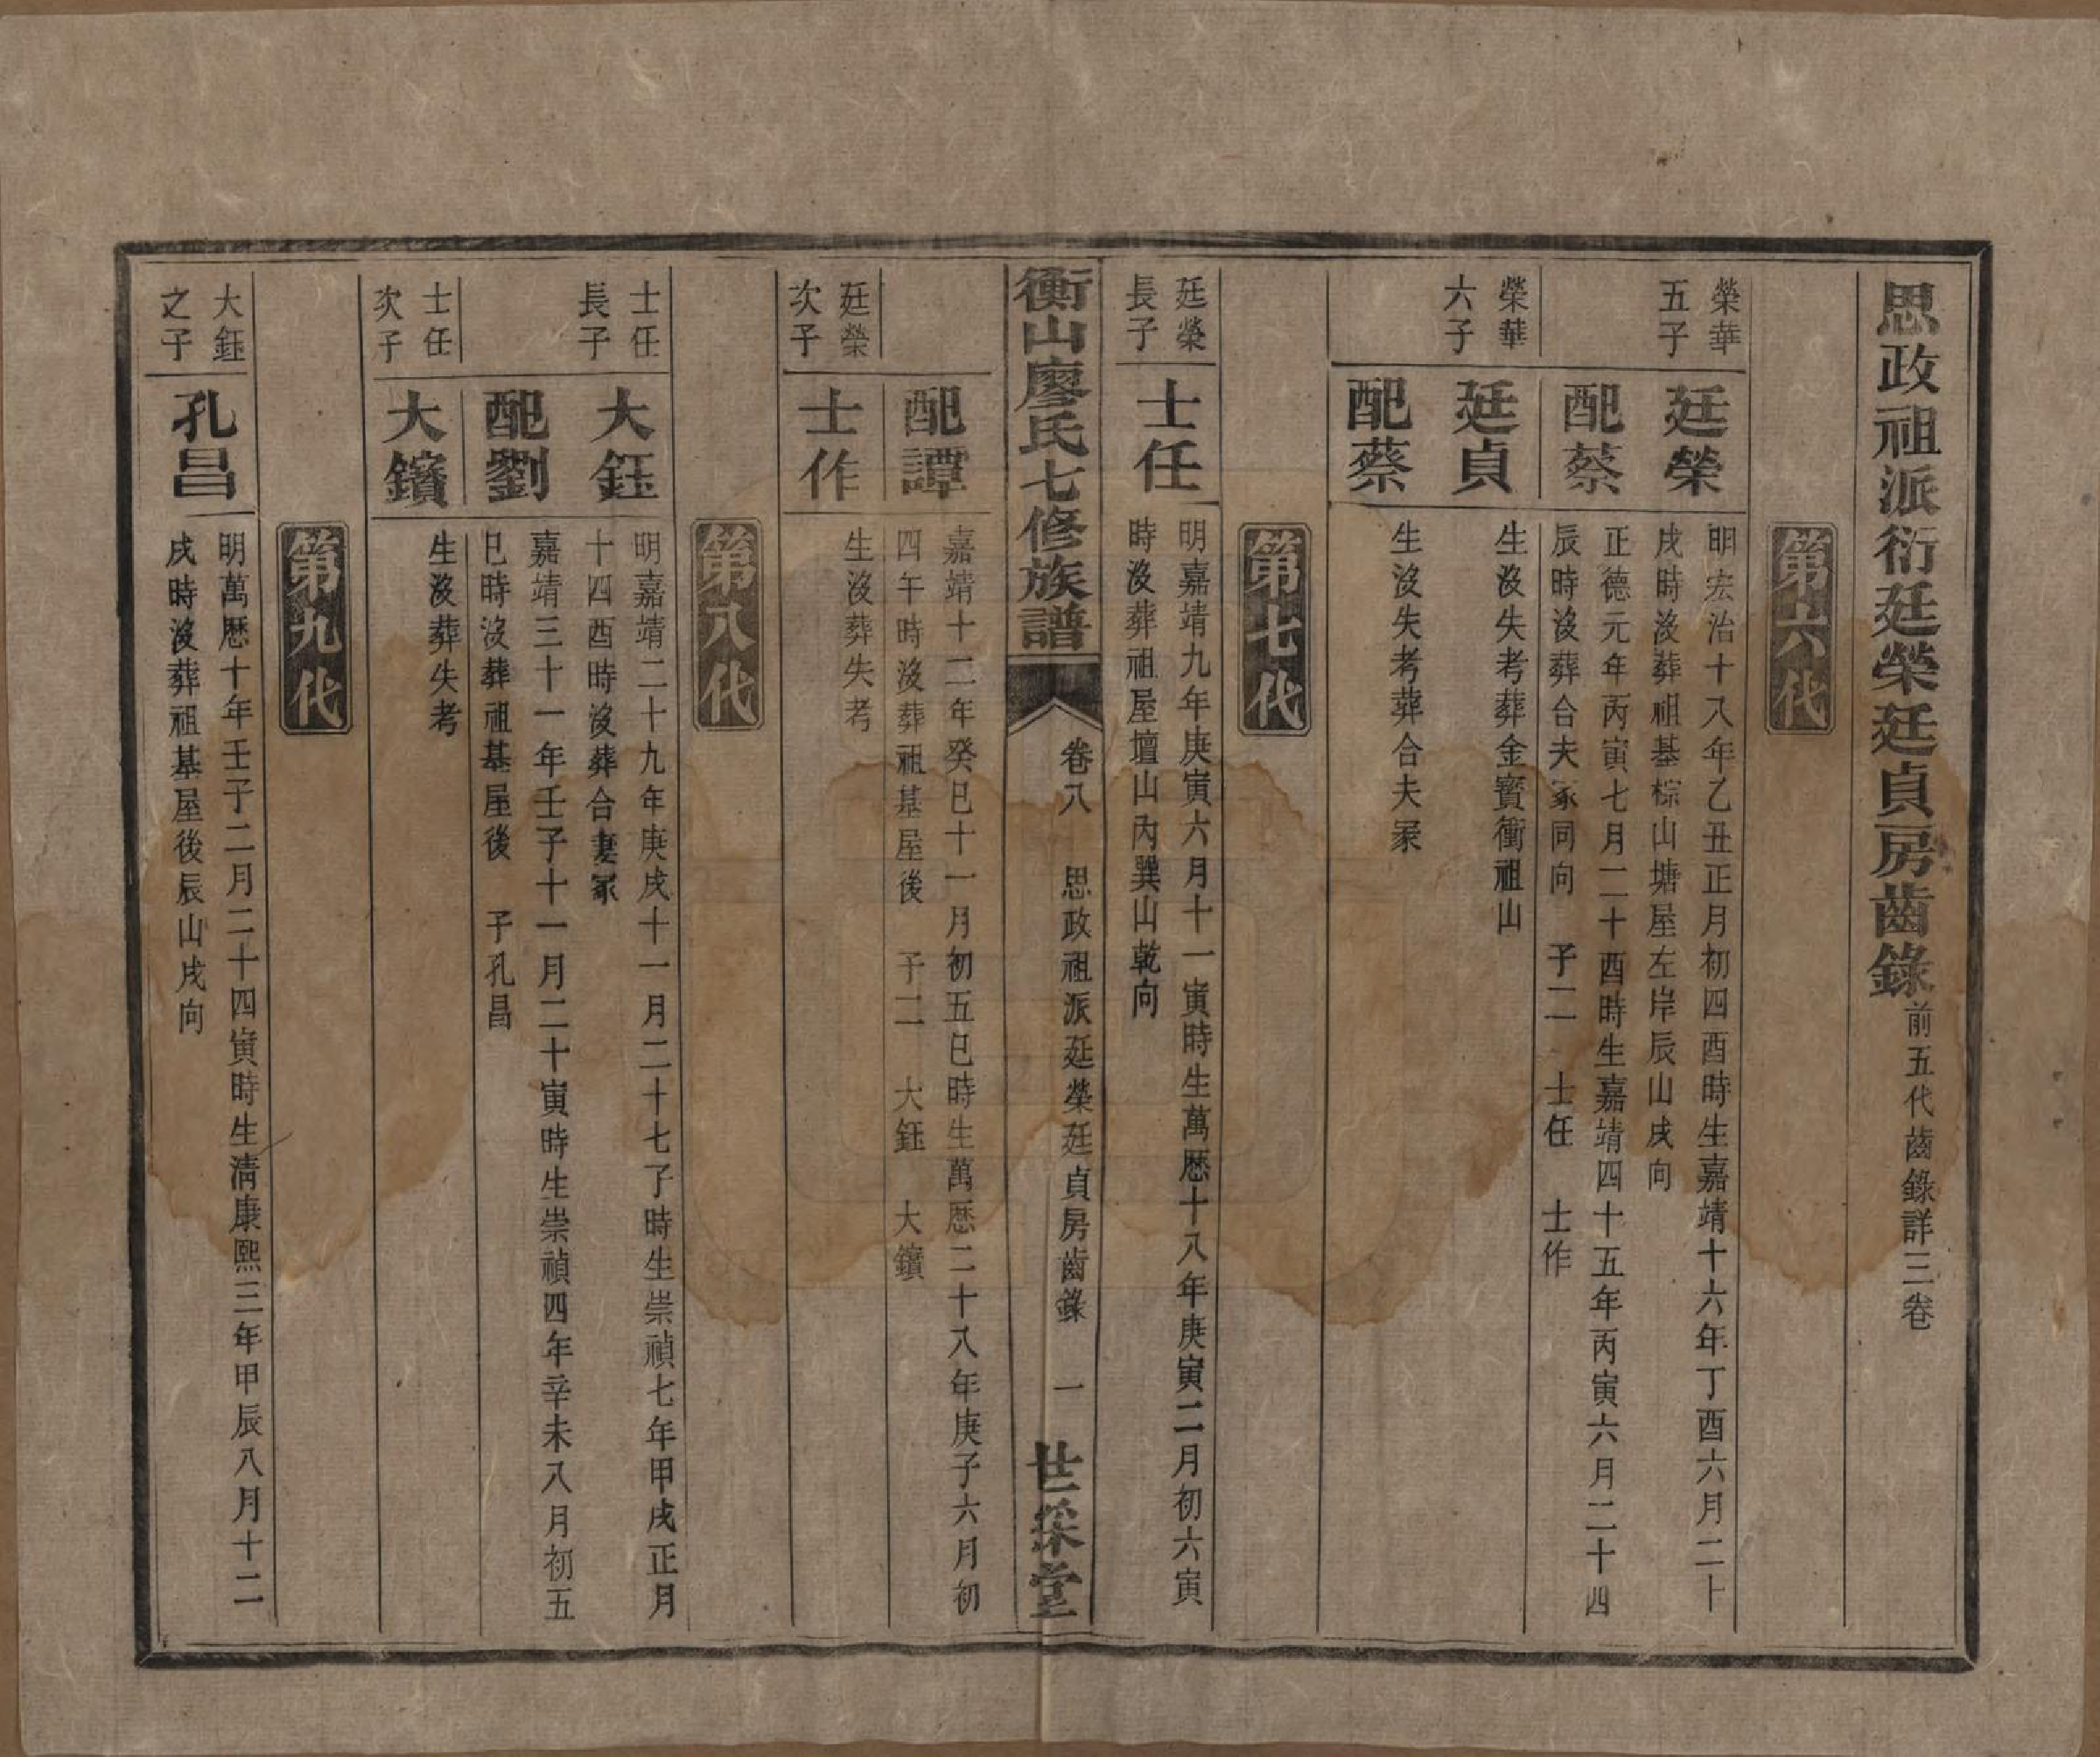 思政祖派衍廷榮廷貞房齒錄 前五代齒錄詳三卷
第六代
榮華
五子
廷榮
明宏治十八年乙丑正月初四酉時生嘉靖十六年丁酉六月二十
戌時沒葬祖基棕山塘屋左岸辰山戌向
配蔡
正德元年丙寅七月二十酉時生嘉靖四十五年丙寅六月二十四
辰時沒葬合夫冢同向 子二 士任 士作
榮華
六子
廷貞
生沒失考葬金寶衝祖山
配蔡
生沒失考葬合夫冢
第七代
廷榮
長子
士任
明嘉靖九年庚寅六月十一寅時生萬歷十八年庚寅二月初六寅
時沒葬祖屋壇山內巽山乾向
衡山廖氏七修族譜
卷八 思政祖派廷榮廷貞房齒錄 一
世綵堂
配譚
嘉靖十二年癸巳十一月初五巳時生萬歷二十八年庚子六月初
四午時沒葬祖基屋後 子二 大鈺 大鑌
廷榮
次子
士作
生沒葬失考
第八代
士任
長子
大鈺
明嘉靖二十九年庚戌十一月二十七子時生崇禎七年甲戌正月
十四酉時沒葬合妻冢
配劉
嘉靖三十一年壬子十一月二十寅時生崇禎四年辛未八月初五
巳時沒葬祖基屋後 子孔昌
士任
次子
大鑌
生沒葬失考
第九代
大鈺
之子
孔昌
明萬歷十年壬子二月二十四寅時生清康熙三年甲辰八月十二
戌時沒葬祖基屋後辰山戌向